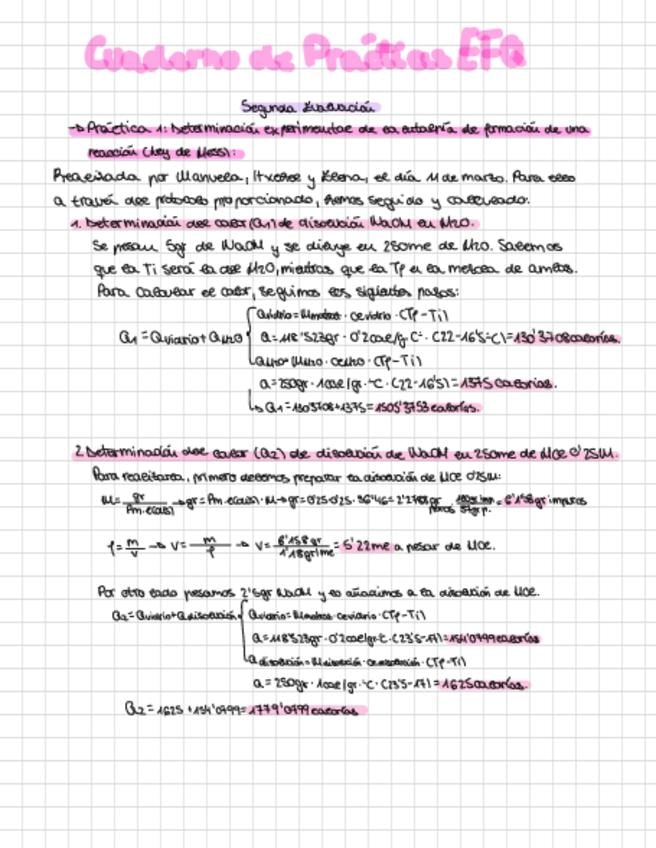 Cuaderno de Prácticas EFQ
Segunda Evaluación
→ Práctica 1: Determinación experimental de la entalpía de formación de una
reacción (Ley de Hess):
Realizada por Manuela, Itxose y Elena, el día 11 de marzo. Para ello
a través del protocolo proporcionado, hemos seguido y calculado:
1. Determinación del calor (Q1) de disolución NaOH en H2O.
Se pesan 5gr de NaOH y se diluye en 250ml de H2O. Sabemos
que la Ti será la del H2O, mientras que la Tf es la mezcla de ambos.
Para calcular el calor, seguimos los siguientes pasos:
Qvidrio = Mmatraz · cevidrio · (Tf - Ti)
Q1 = Qvidrio + QH2O Q = 118'523gr · 0'2cal/g·Cº · (22-16'5ºC) = 130'3708calorías.
QH2O = MH2O · ceH2O · (Tf - Ti)
Q = 250gr · 1cal/gr·ºC · (22-16'5) = 1375 calorías.
↳ Q1 = 130'3708 + 1375 = 1505'3753 calorías.
2. Determinación del calor (Q2) de disolución de NaOH en 250ml de HCl 0'25M.
Para realizarla, primero debemos preparar la disolución de HCl 0'25M:
M = gr / Pm·l(disol) → gr = Pm·l(disol)·M → gr = 0'25·0'25·36'46 = 2'278gr = 6'158gr impuros
ρ = m/v → V = m/ρ → V = 6'158gr / 1'18gr/ml = 5'22ml a pesar de HCl.
Por otro lado pesamos 2'5gr NaOH y lo añadimos a la disolución de HCl.
Q2 = Qvidrio + Qdisolución Qvidrio = Mmatraz · cevidrio · (Tf - Ti)
Q = 118'523gr · 0'2cal/gr·C · (23'5-17) = 154'0799calorías
Qdisolución = Mdisolución · cedisolución · (Tf - Ti)
Q = 250gr · 1cal/gr·ºC · (23'5-17) = 1625calorías.
Q2 = 1625 + 154'0799 = 1779'0799 calorías